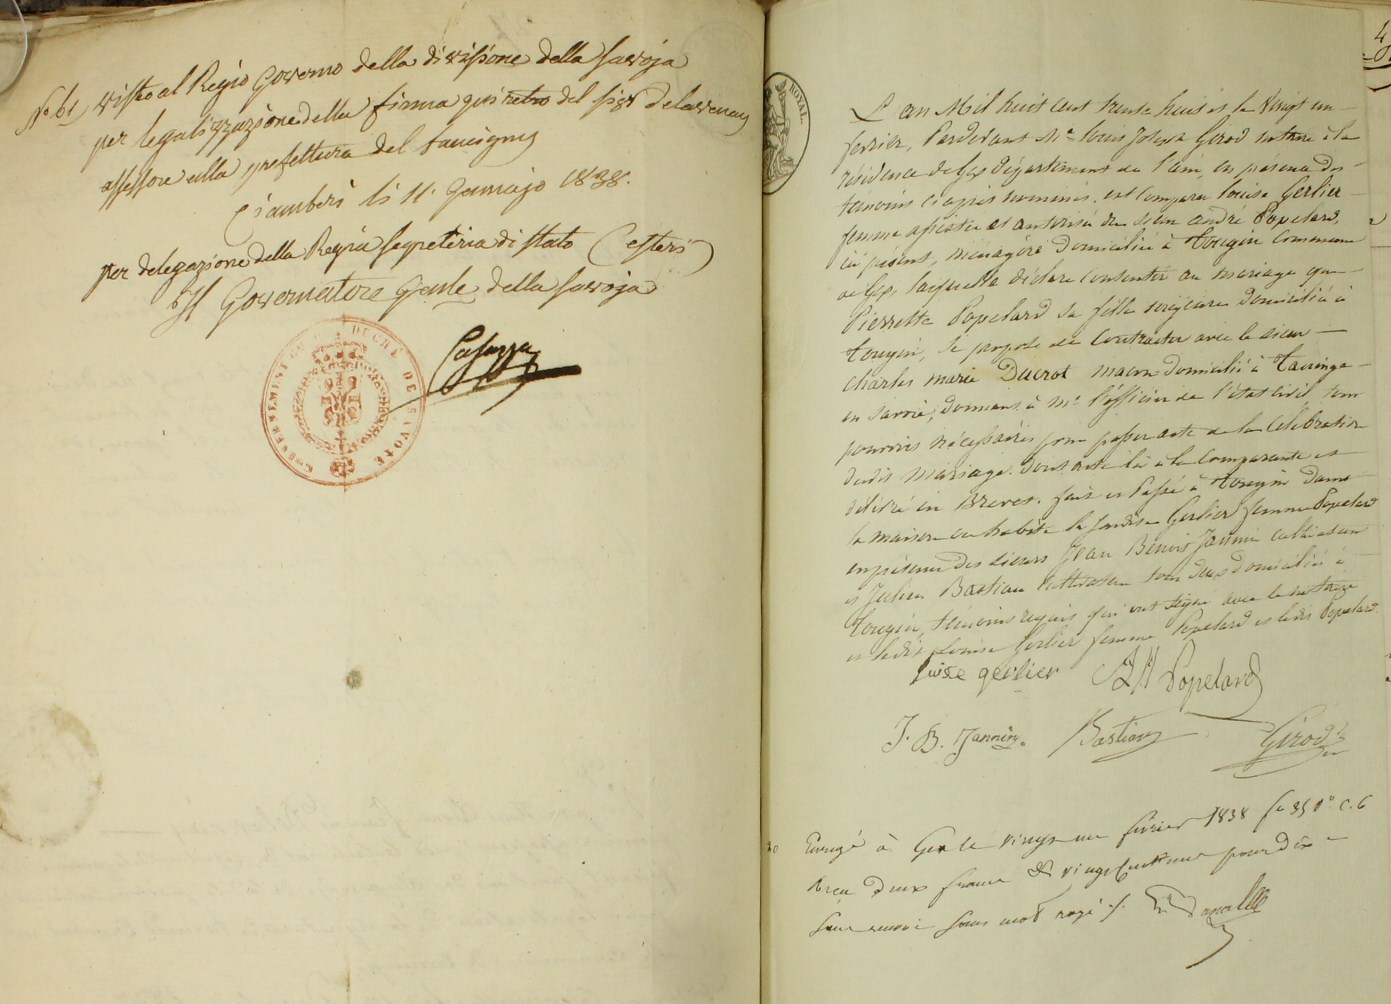 No 61, visto al Regio Governo della divisione della Savoja
per legalizzazione della firma qui retro del sigr Delavenay
assessore alla prefettura del Faucigny
Ciamberì li 11 Gennajo 1838.
per delegazione della Regia segreteria di stato (esteri)
Il Governatore Gnle della Savoja
Casazza
GOUVERNEMENT DU DUCHÉ DE SAVOIE
ROYAL.
L'an Mil huit cent trente huit et le Vingt un
février, Pardevant Me Louis Joseph Girod notaire à la
résidence de Gex département de l'ain, en présence des
temoins ci après nommés, est comparu Louise Gerlier
femme assistée et autorisée du sieur andré Popelard
ici présent, ménagère domiciliée à Tougin Commune
de Gex, laquelle déclare consentir au mariage que
Pierrette Popelard sa fille majeure domiciliée à
Tougin, se propose de Contracter avec le sieur
charles marie Ducrot macon domicilié à Taninge
en Savoie; donnant à Mr l'officier de l'état civil tous
pouvoirs nécessaires pour passer acte de la Célébration
dudit mariage. Dont acte lu à la Comparante et
délivré en Brevet. fait et Passé à Tougin Dans
la maison ou habite la femme Gerlier femme Popelard
en présence des sieurs Jean Benoit Jannin cultivateur
et Julien Bastian cultivateur tous deux domiciliés à
Tougin, témoins requis qui ont signé avec le notaire
et ladite Louise Gerlier femme Popelard et ledit Popelard
Luise gerlier Popelard
J. B. Jannin. Bastian Girod
Enregé à Gex le vingt un fevrier 1838 fo 35 Ro C. 6
Reçu deux francs & vingt centimes pour dixe
sans renvoi sans mot rayé